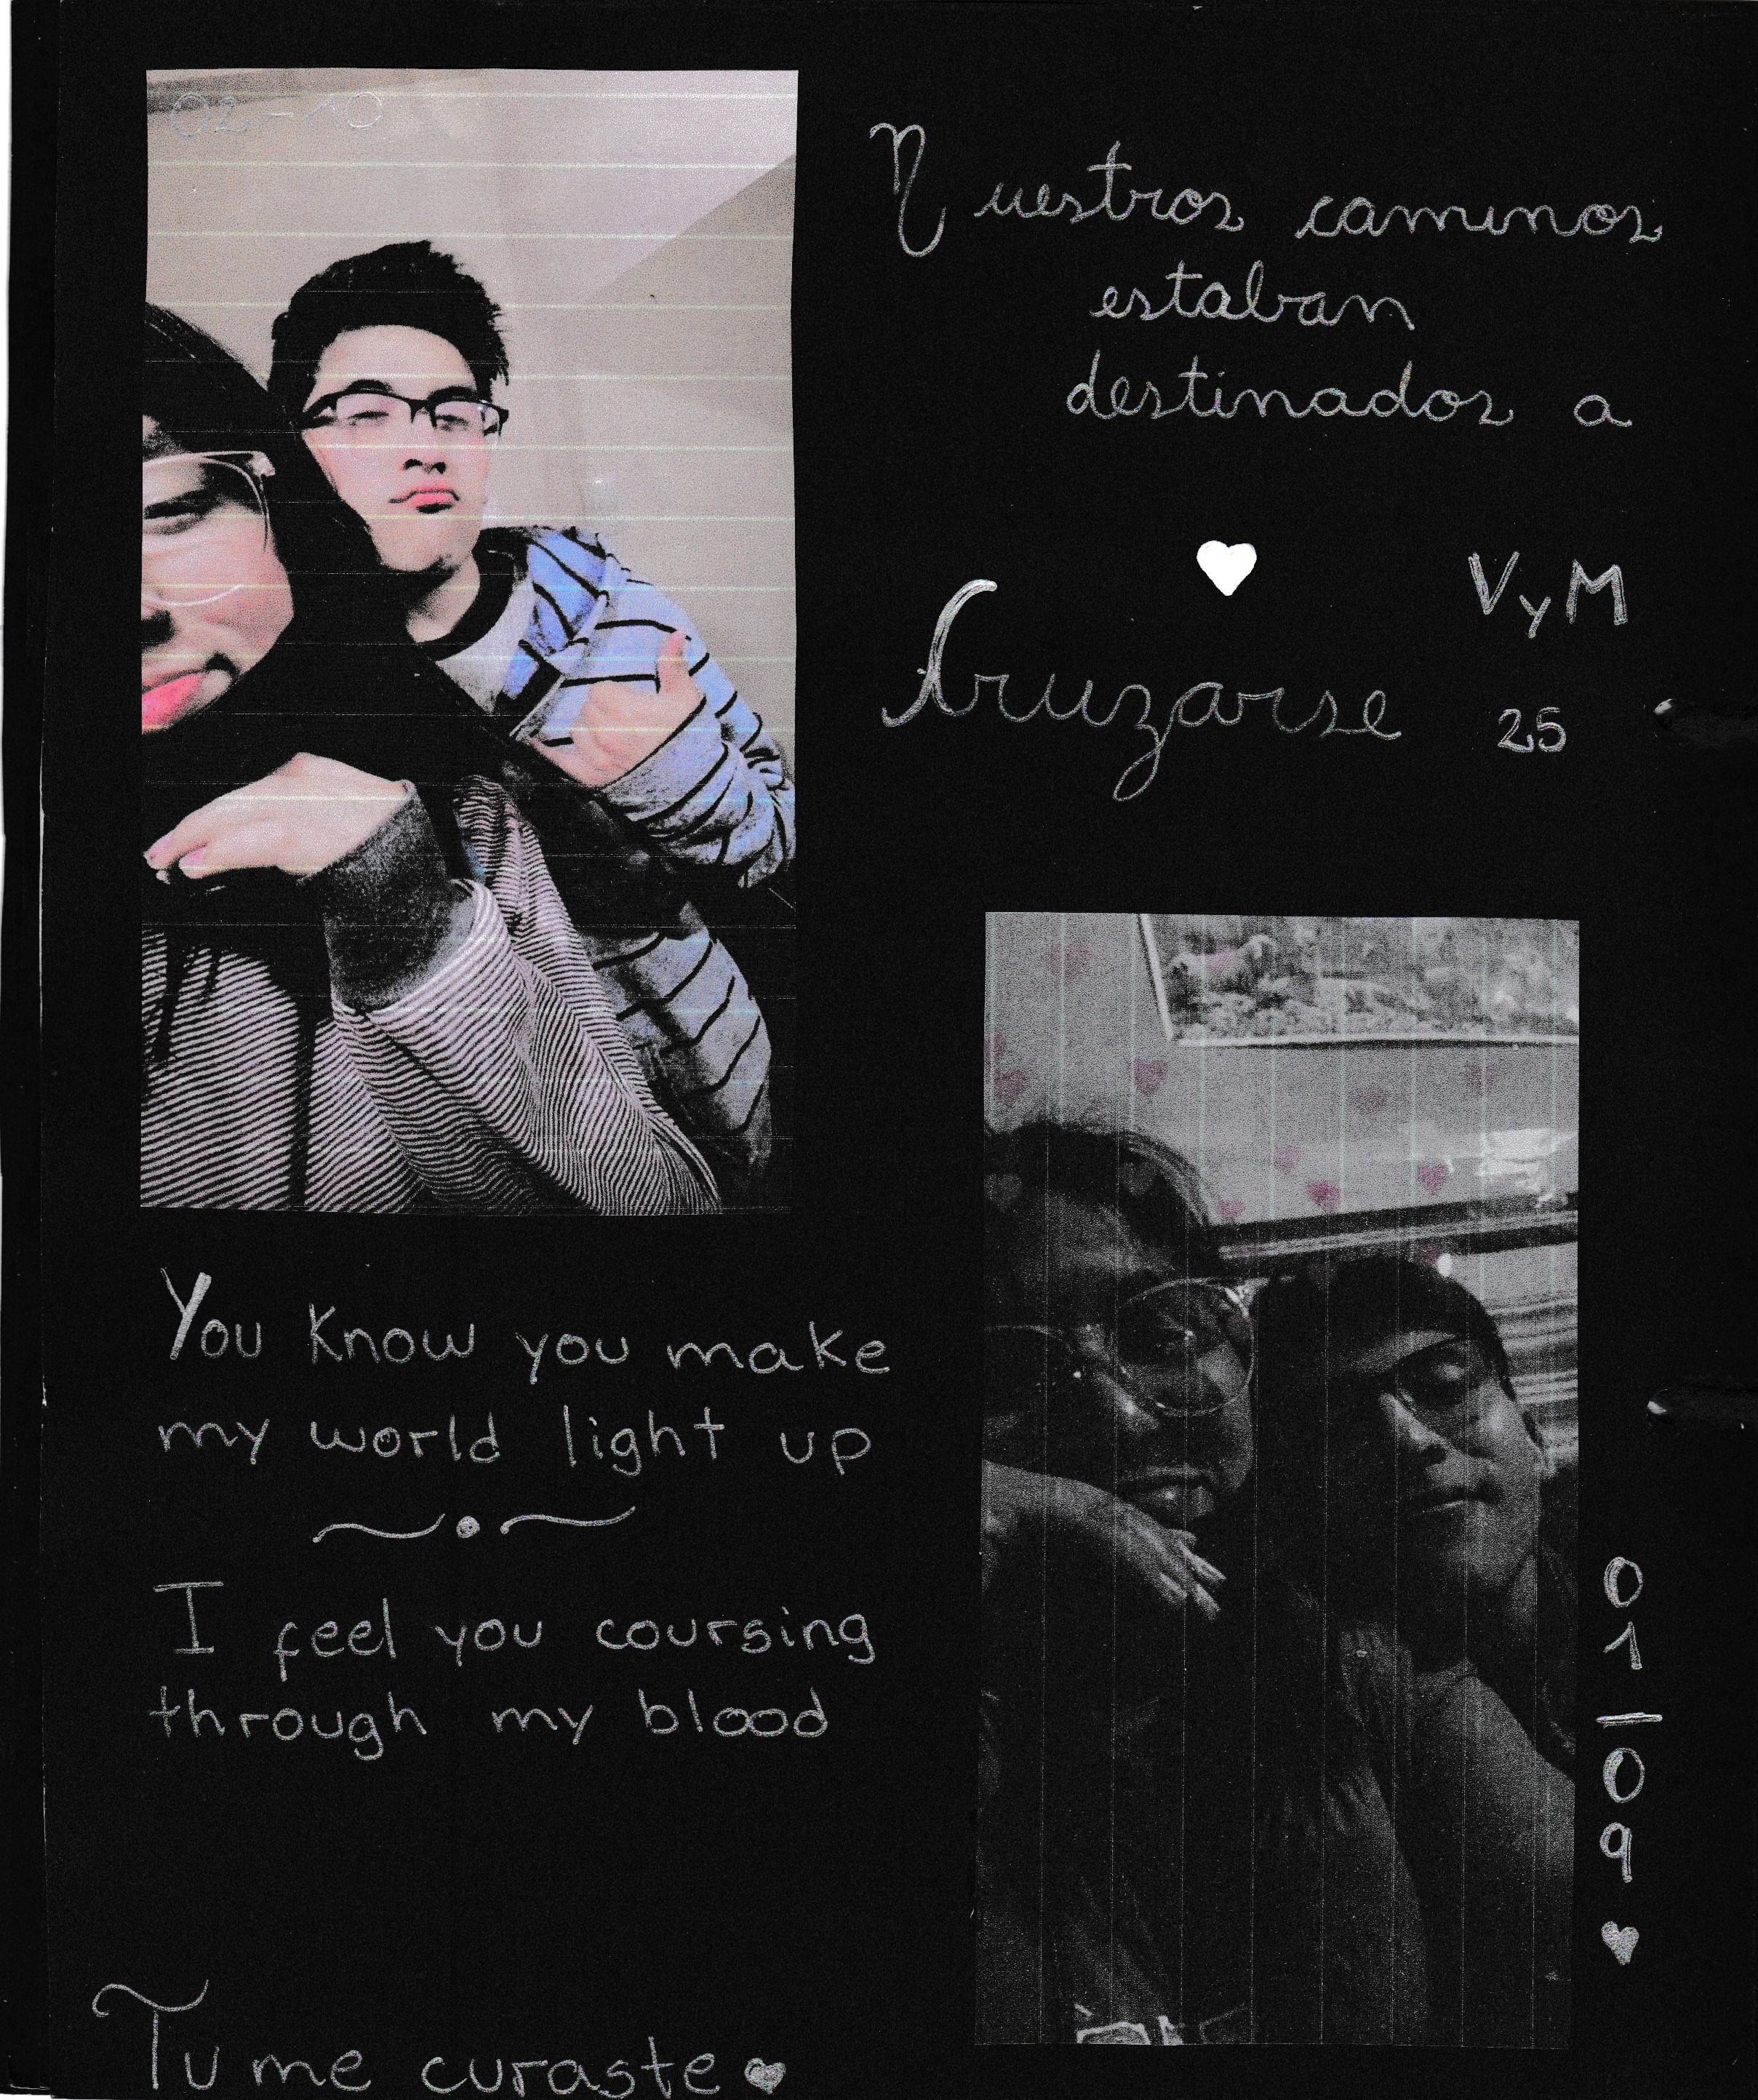 02-10
Nuestros caminos
estaban
destinados a
Cruzarse
VyM
25
You Know you make
my world light up
I feel you coursing
through my blood
01-09
Tu me curaste